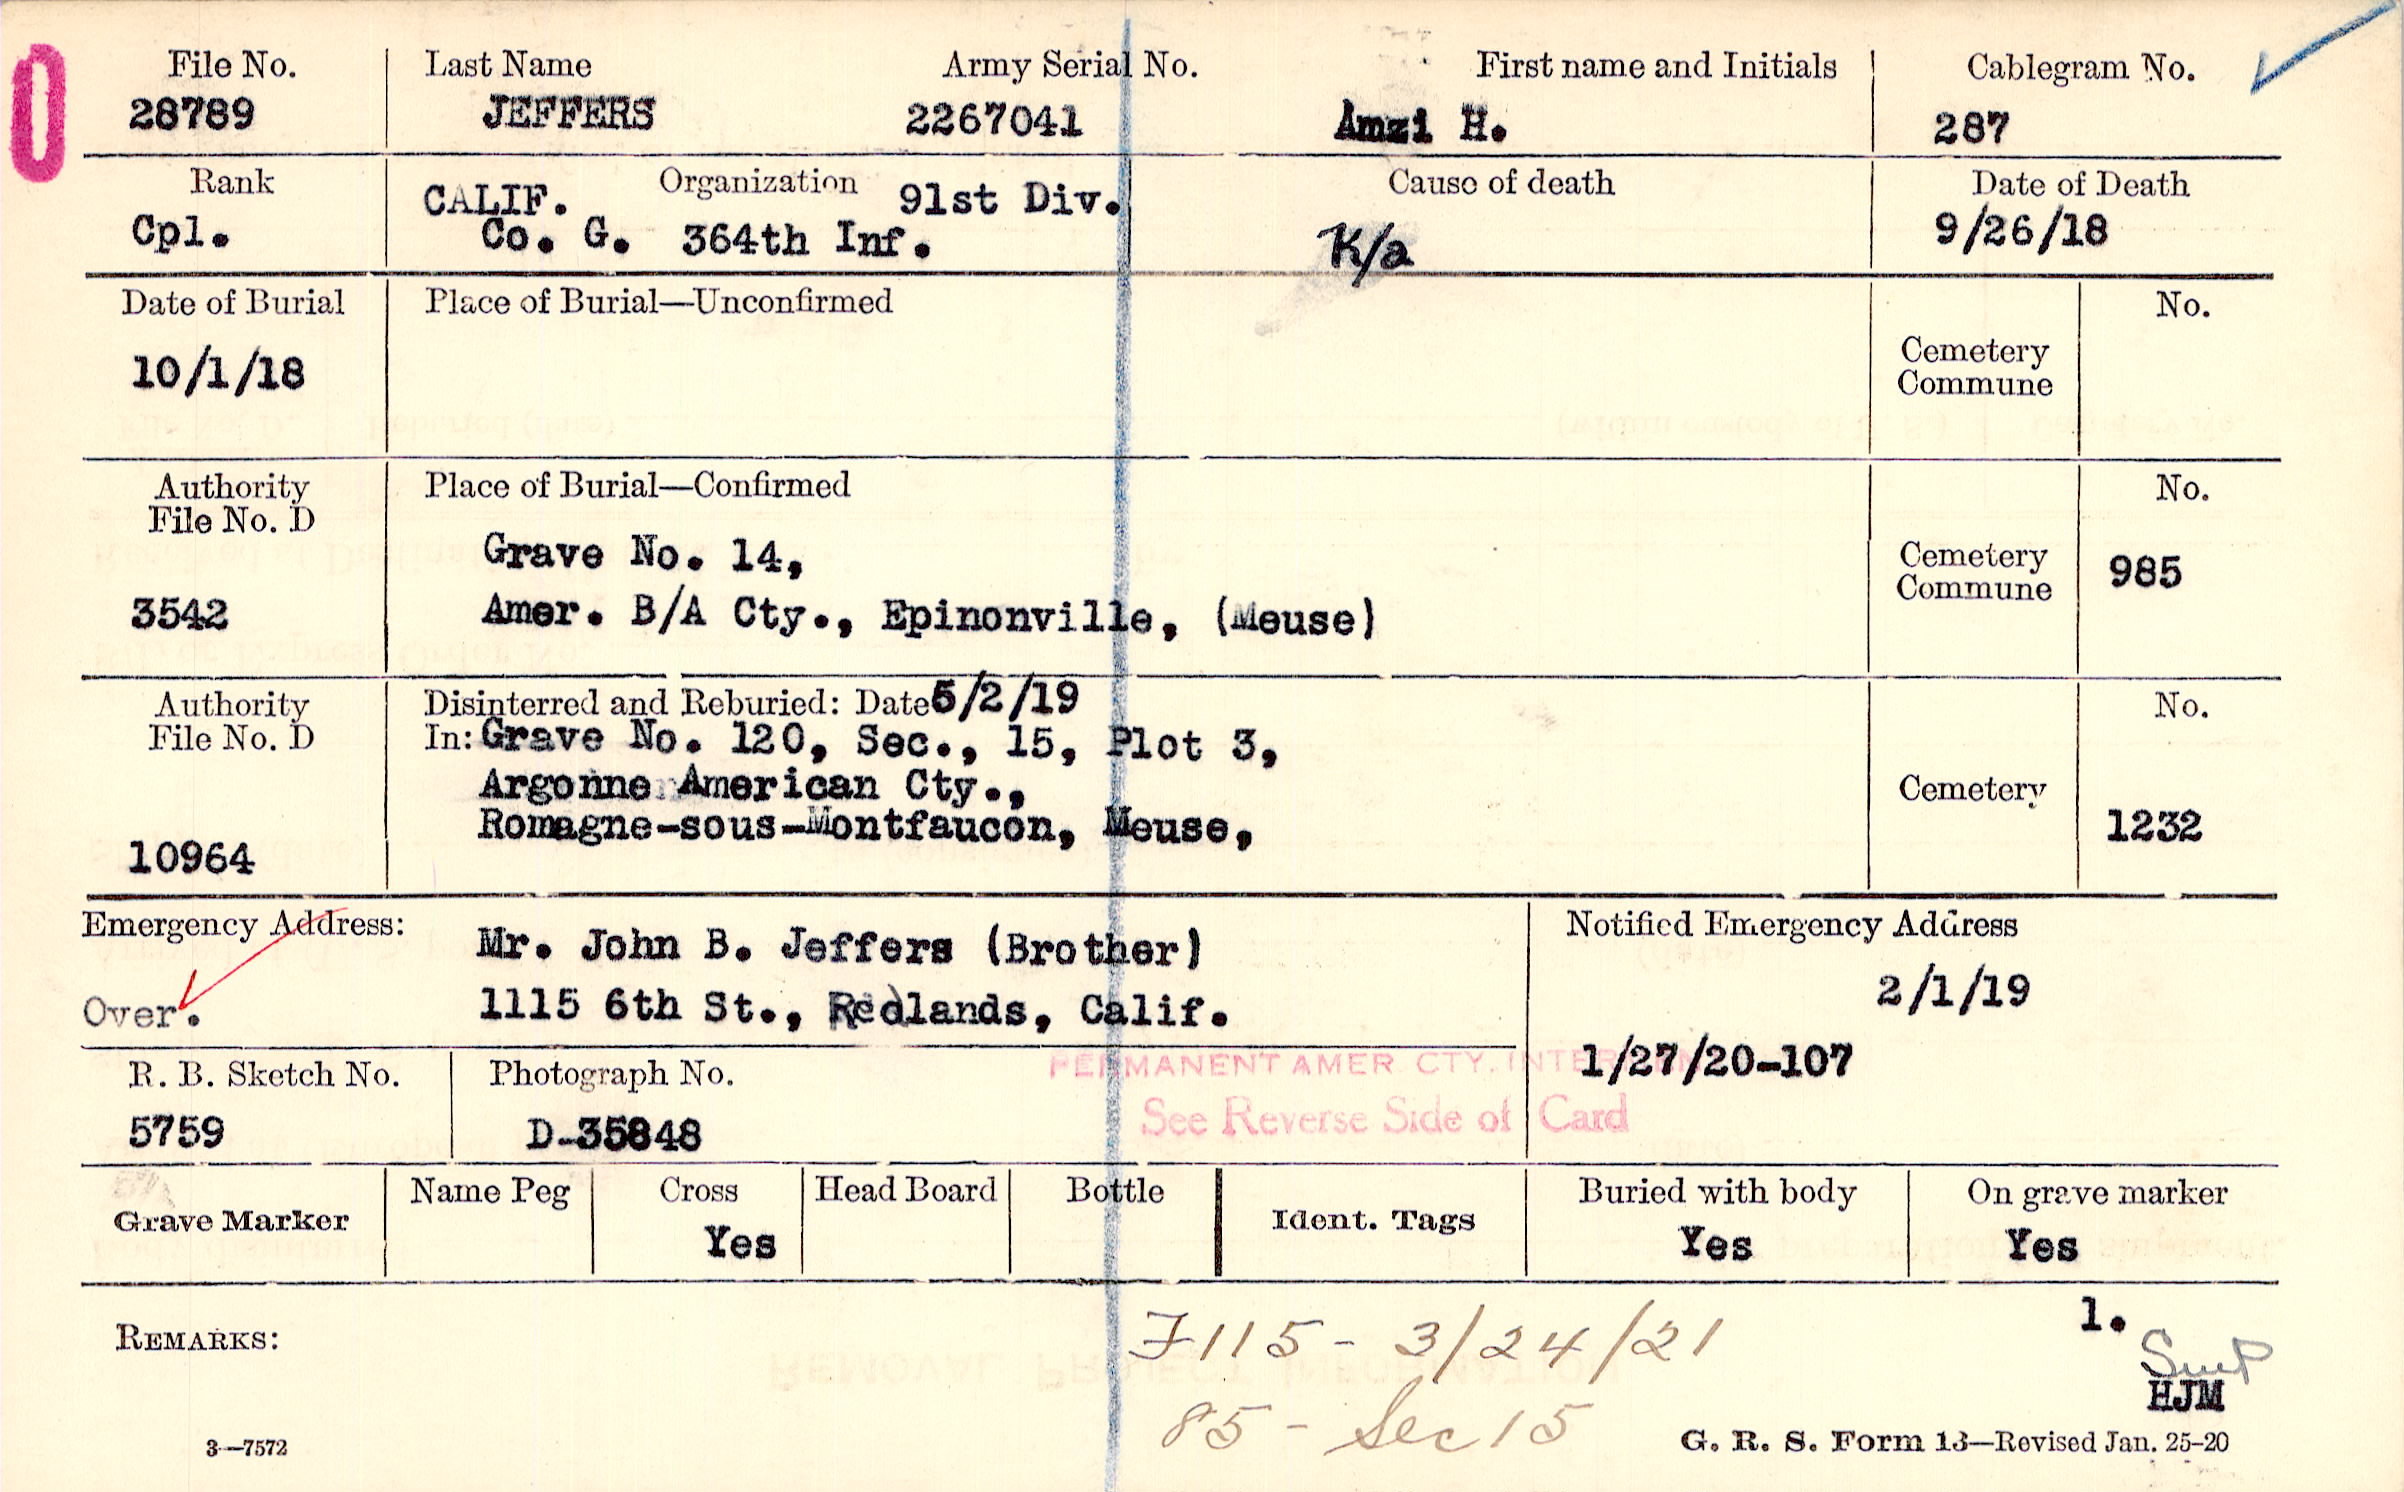 File No. Last Name Army Serial No. First name and Initials Cablegram No.
28789 JEFFERS 2267041 Amzi H. 287
Rank CALIF. Organization 91st Div. Cause of death Date of Death
Cpl. Co. G. 364th Inf. K/a 9/26/18
Date of Burial Place of Burial—Unconfirmed No.
10/1/18 Cemetery
Commune
Authority Place of Burial—Confirmed No.
File No. D
Grave No. 14, Cemetery 985
Commune
3542 Amer. B/A Cty., Epinonville, (Meuse)
Authority Disinterred and Reburied: Date 5/2/19 No.
File No. D In: Grave No. 120, Sec., 15, Plot 3,
Argonne American Cty., Cemetery
Romagne-sous-Montfaucon, Meuse, 1232
10964
Emergency Address: Mr. John B. Jeffers (Brother) Notified Emergency Address
Over. 1115 6th St., Redlands, Calif. 2/1/19
PERMANENT AMER. CTY. 1/27/20-107
R. B. Sketch No. Photograph No.
5759 D-35848 See Reverse Side of Card
Grave Marker Name Peg Cross Head Board Bottle Ident. Tags Buried with body On grave marker
Yes Yes Yes
REMARKS: 1.
F115 - 3/24/21
HJM
85 - Sec 15
3—7572 G. R. S. Form 13—Revised Jan. 25-20